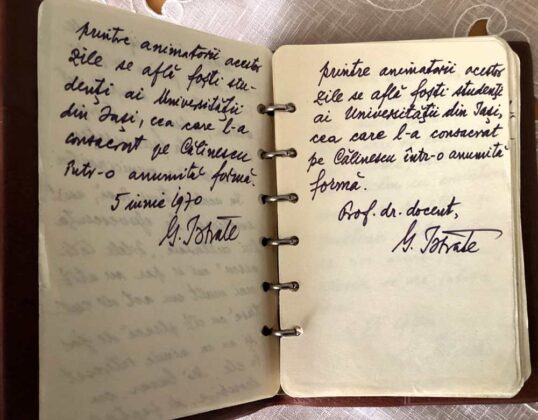 printre animatorii acestor
zile se află foști stu-
denți ai Universității
din Iași, cea care l-a
consacrat pe Călinescu
într-o anumită formă.
5 iunie 1970
G. Istrate
printre animatorii acestor
zile se află foști studenți
ai Universității din Iași,
cea care l-a consacrat
pe Călinescu într-o anumită
formă.
Prof. dr. docent,
G. Istrate